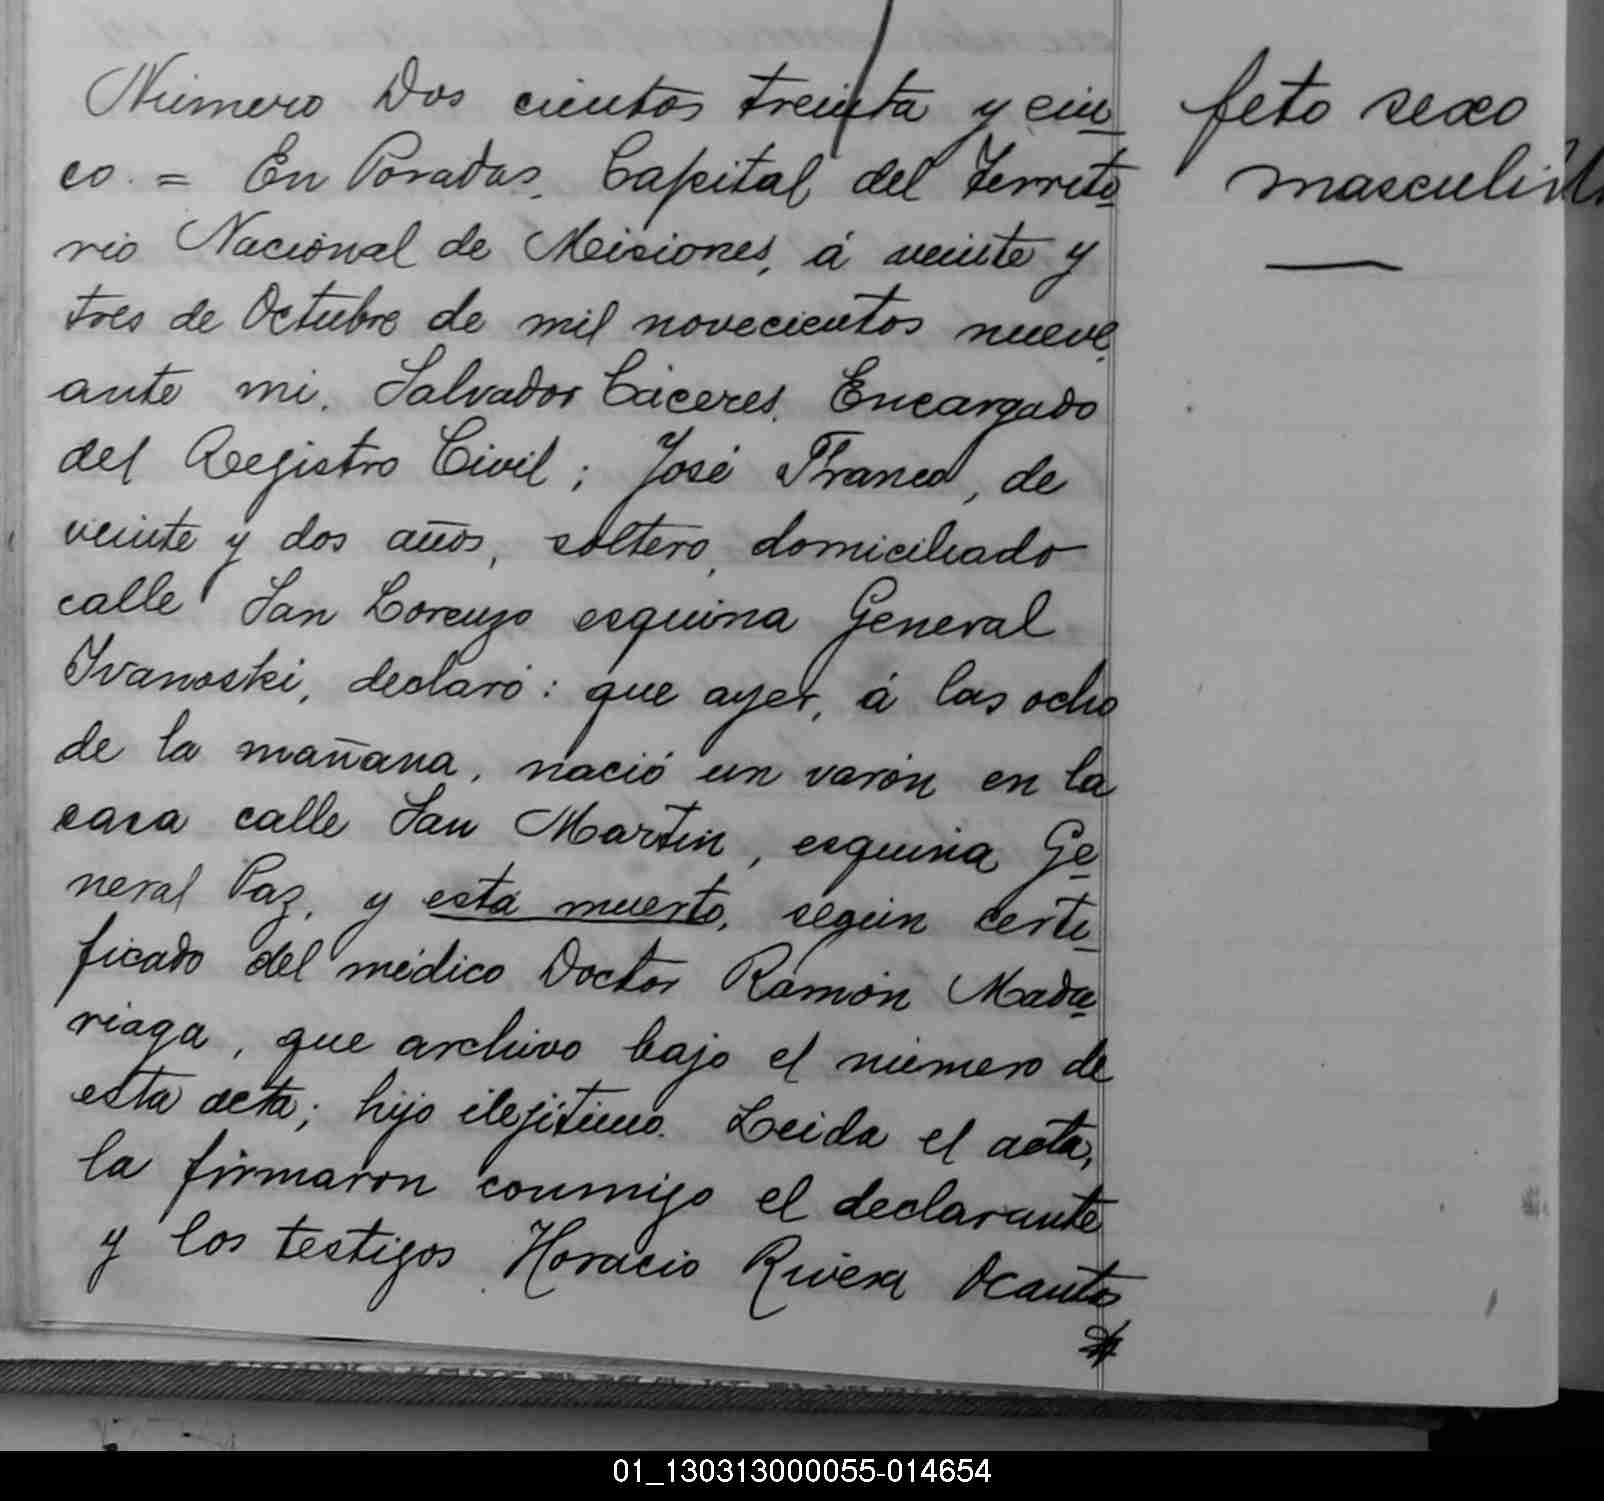 Número Dos cientos treinta y cin_
co. = En Posadas, Capital del Territo_
rio Nacional de Misiones, á veinte y
tres de Octubre de mil novecientos nueve,
ante mi, Salvador Cáceres, Encargado
del Registro Civil; José Franco, de
veinte y dos años, soltero, domiciliado
calle San Lorenzo esquina General
Ivanoski, declaró: que ayer, á las ocho
de la mañana, nació un varón en la
casa calle San Martin, esquina Ge_
neral Paz, y está muerto, según certi_
ficado del médico Doctor Ramón Mada_
riaga, que archivo bajo el número de
esta acta; hijo ilejítimo. Leida el acta,
la firmaron conmigo el declarante
y los testigos Horacio Rivera Ocantos
feto sexo
masculino
01_130313000055-014654